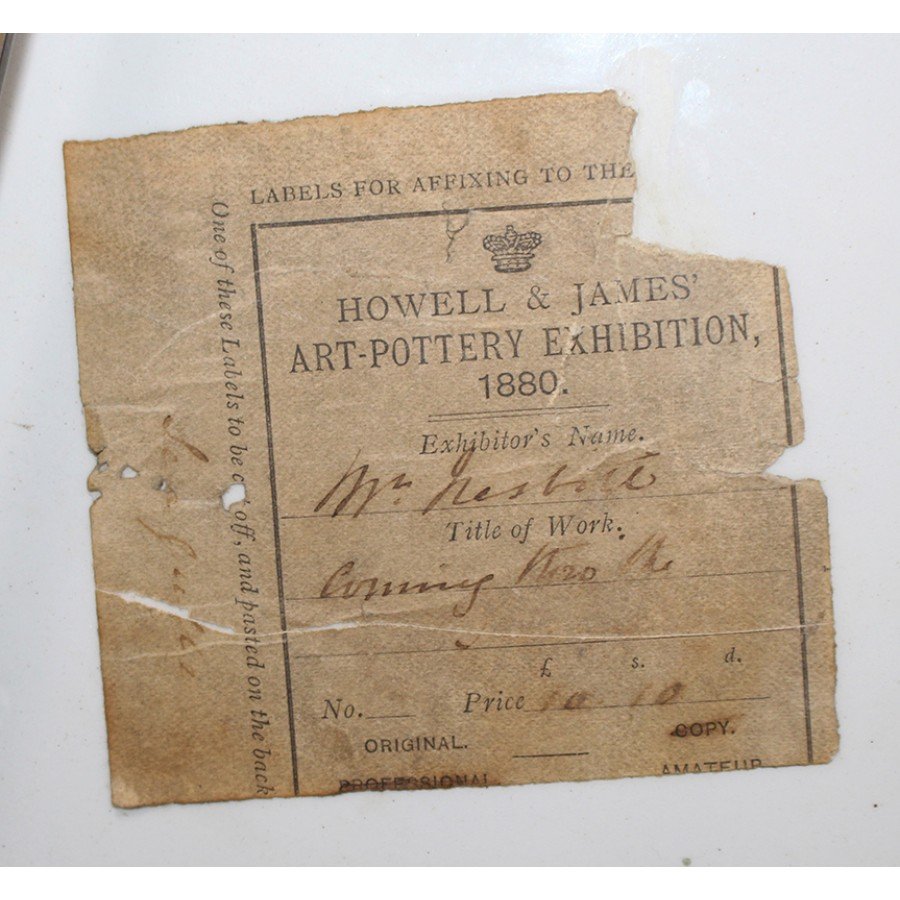 LABELS FOR AFFIXING TO THE
One of these Labels to be c t off, and pasted on the back
HOWELL & JAMES'
ART-POTTERY EXHIBITION,
1880.
Exhibitor's Name.
Mrs Nesbitt
Title of Work.
Coming thro the
£ s. d.
No. Price 10 10
ORIGINAL. COPY.
PROFESSIONAL AMATEUR